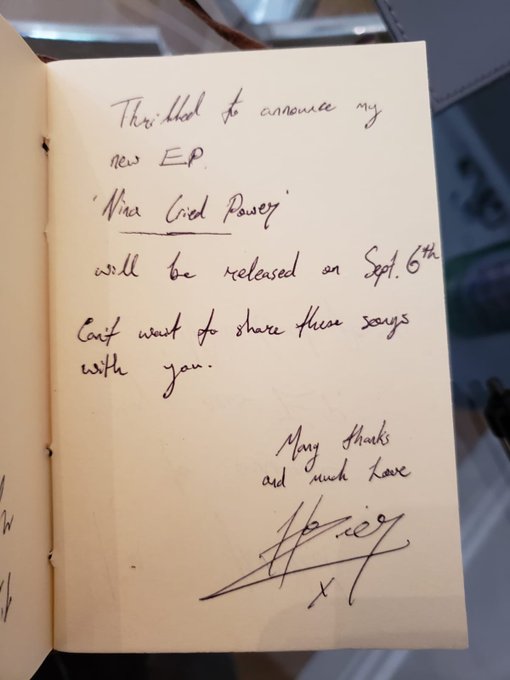 Thrilled to announce my
new EP.
'Nina Cried Power'
will be released on Sept. 6th
Can't wait to share these songs
with you.
Many thanks
and much love
Hozier
x